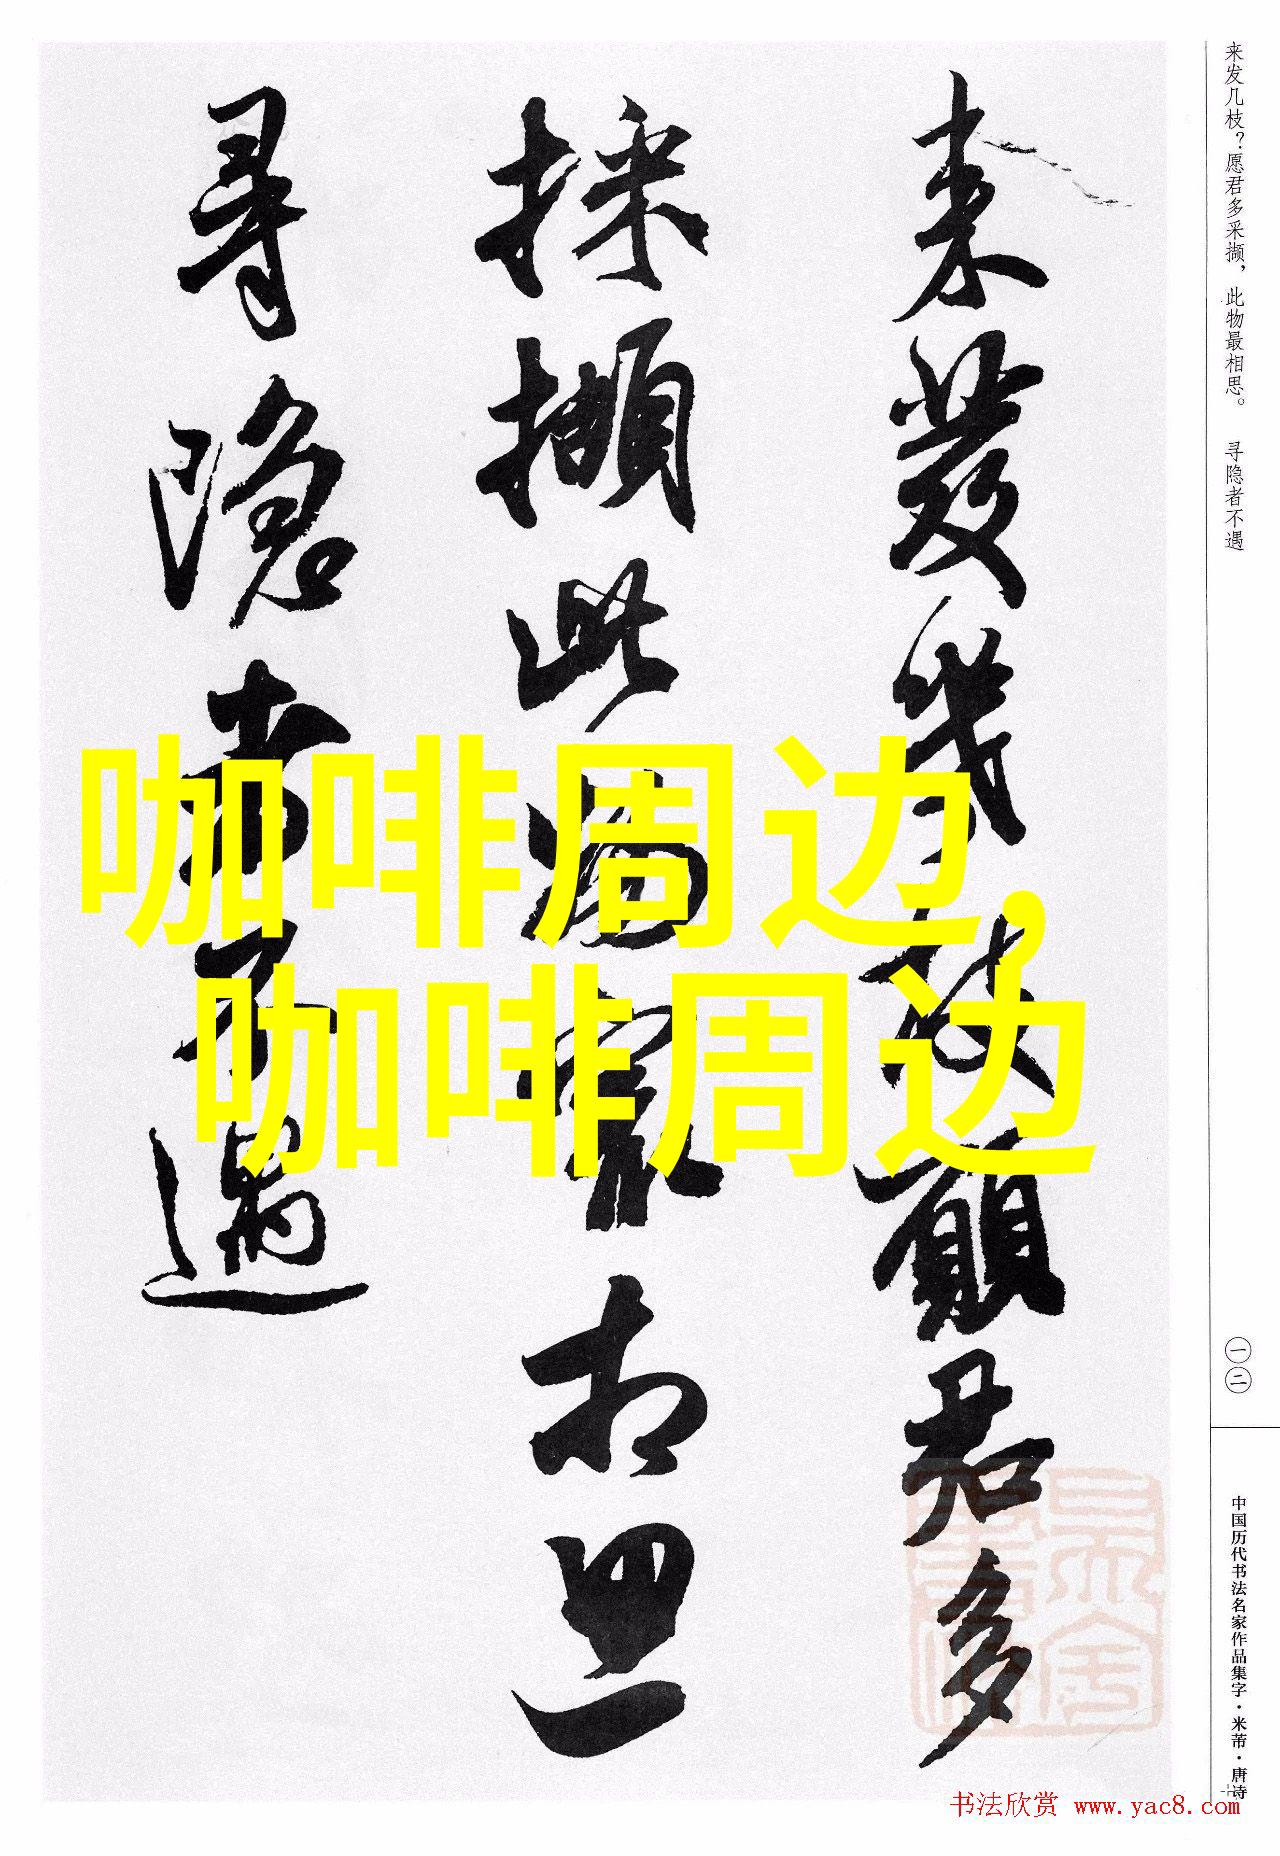 来发几枝？愿君多采撷，此物最相思。 寻隐者不遇
來發幾枝願君多
採擷此物最相思
尋隱者不遇
咖啡周边，
咖啡周边
一二
中国历代书法名家作品集字·米芾·唐诗
书法欣赏 www.yac8.com